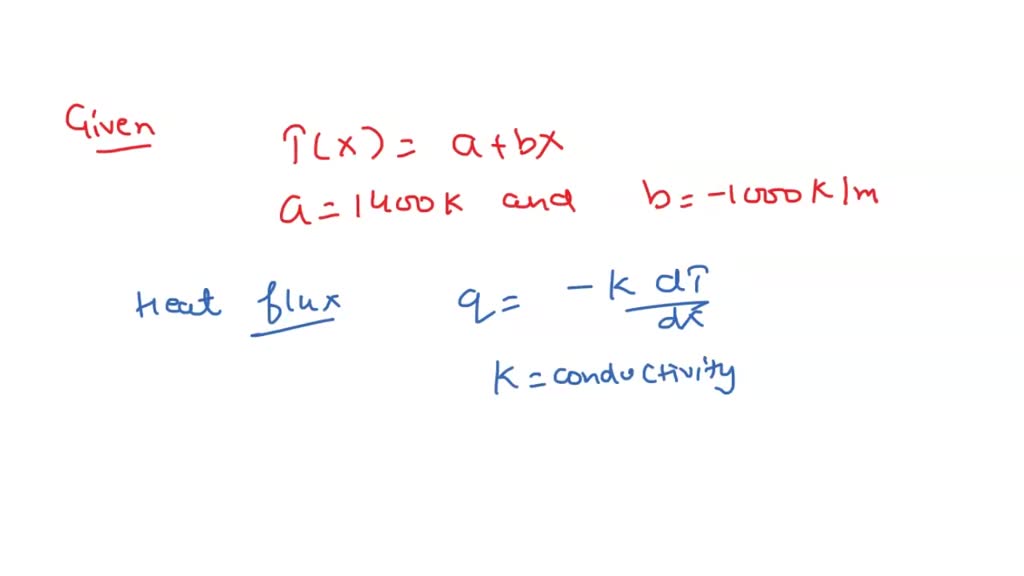 Given
T(x) = a+bx
a = 1400K and b = -1000K/m
Heat flux q = -K dT/dx
K = conductivity